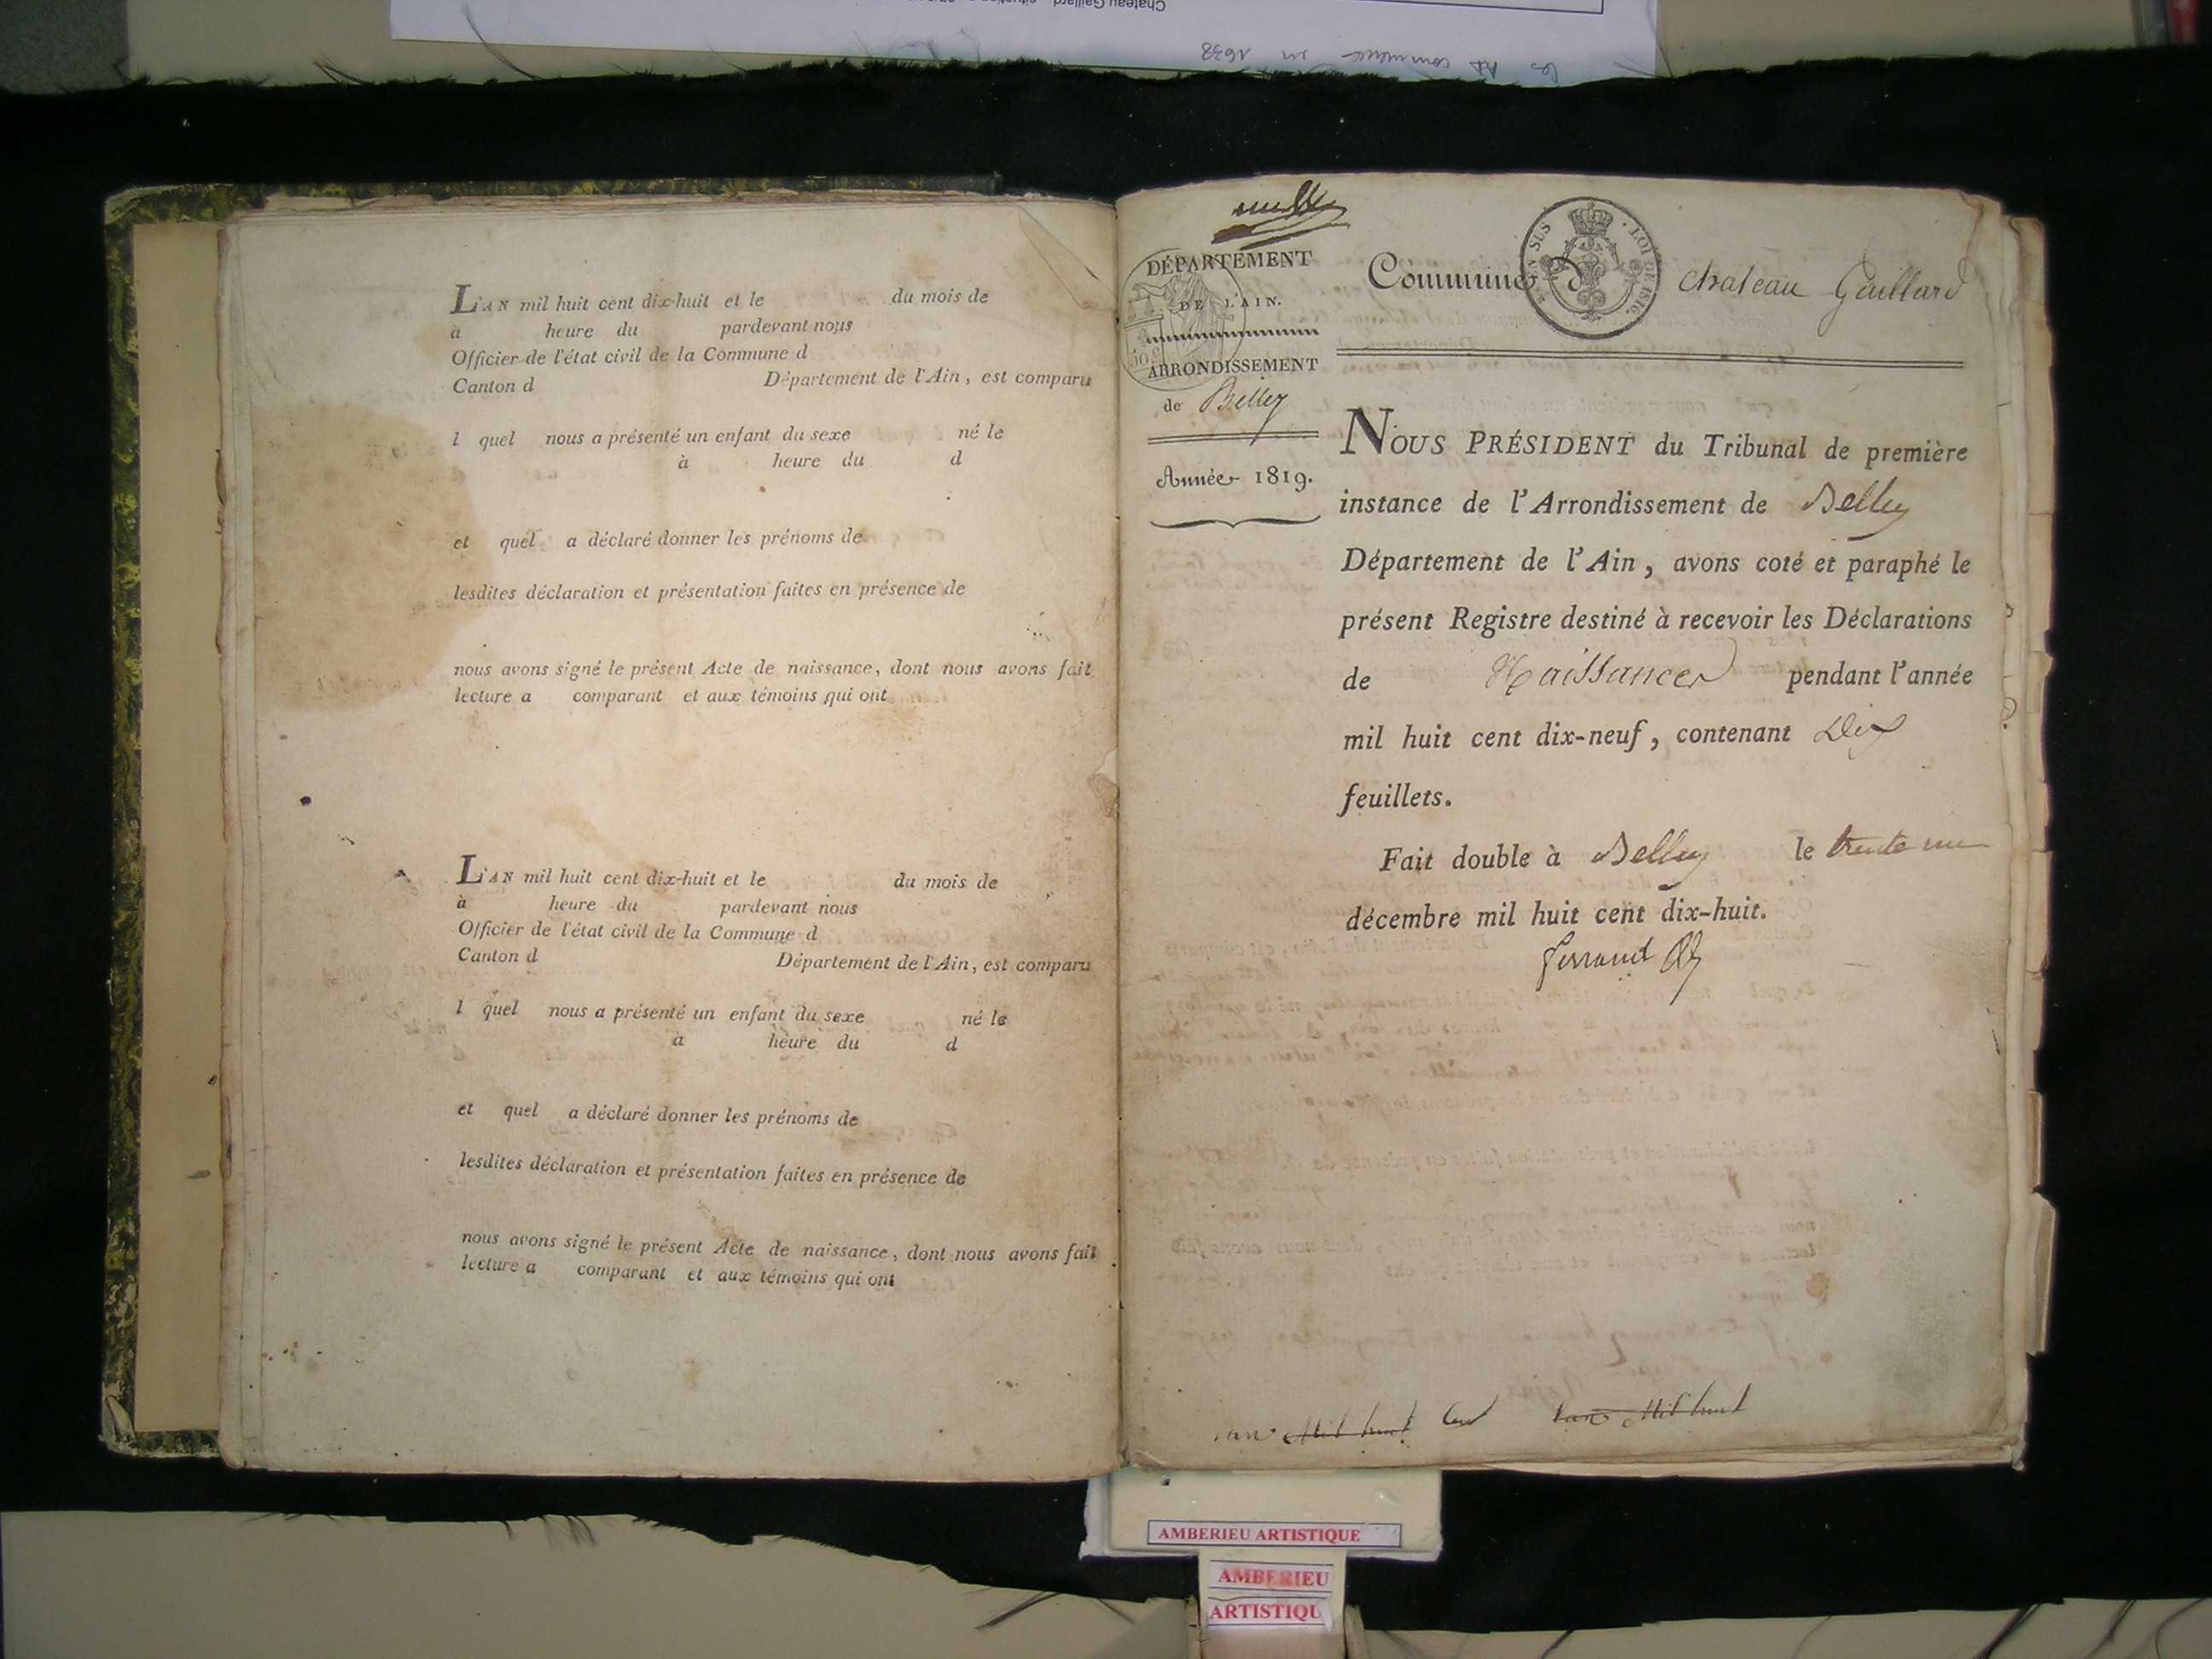 L'AN mil huit cent dix-huit et le du mois de
à heure du pardevant nous
Officier de l'état civil de la Commune d
Canton d Département de l'Ain, est comparu
l quel nous a présenté un enfant du sexe né le
à heure du d
et quel a déclaré donner les prénoms de
lesdites déclaration et présentation faites en présence de
nous avons signé le présent Acte de naissance, dont nous avons fait
lecture a comparant et aux témoins qui ont
L'AN mil huit cent dix-huit et le du mois de
à heure du pardevant nous
Officier de l'état civil de la Commune d
Canton d Département de l'Ain, est comparu
l quel nous a présenté un enfant du sexe né le
à heure du d
et quel a déclaré donner les prénoms de
lesdites déclaration et présentation faites en présence de
nous avons signé le présent Acte de naissance, dont nous avons fait
lecture a comparant et aux témoins qui ont
DÉPARTEMENT
DE L'AIN.
ARRONDISSEMENT
de Belley
Année 1819.
Commune de chateau Gaillard
EN SUS LOI DE 1816.
NOUS PRÉSIDENT du Tribunal de première
instance de l'Arrondissement de Belley
Département de l'Ain, avons coté et paraphé le
présent Registre destiné à recevoir les Déclarations
de Naissances pendant l'année
mil huit cent dix-neuf, contenant Dix
feuillets.
Fait double à Belley le trente un
décembre mil huit cent dix-huit.
lan Mil huit Cent lan Mil huit
AMBERIEU ARTISTIQUE
AMBERIEU
ARTISTIQU
Chateau Gaillard
les commence en 1638